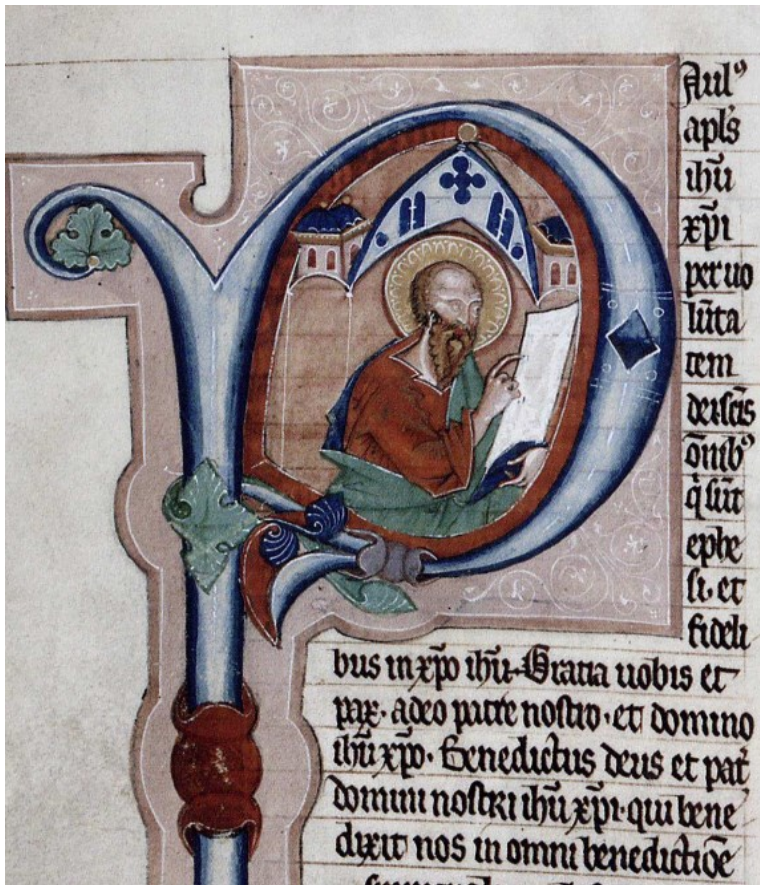 P
Aulꝰ
apl̅s
ihu̅
xp̅i
per uo
lu̅ta
tem
dei sc̅is
o̅nibꝰ
q̇ su̅t
ephe
si· et
fideli
bus in xp̅o ihu̅· Gratia uobis et
pax· a deo patre nostro· et domino
ihu̅ xp̅o· Benedictus deus et pat̅
domini nostri ihu̅ xp̅i· qui bene
dixit nos in omni benedictio̅e